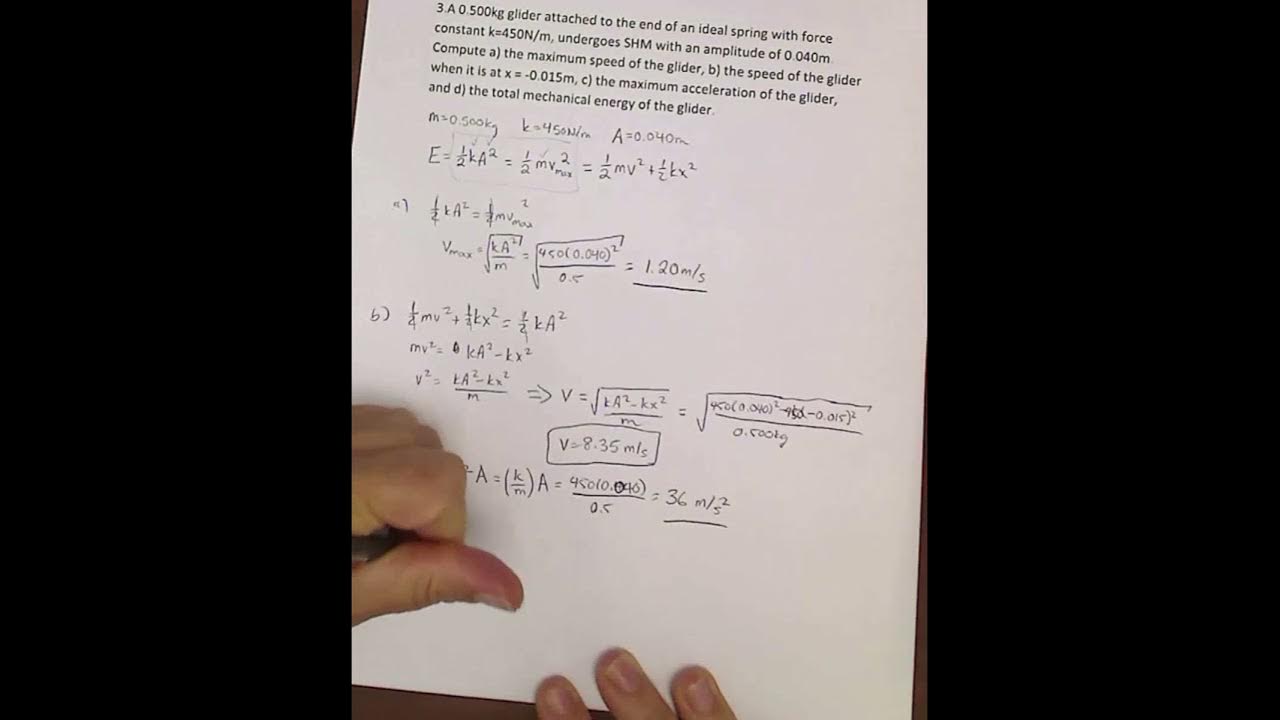 3.A 0.500kg glider attached to the end of an ideal spring with force
constant k=450N/m, undergoes SHM with an amplitude of 0.040m.
Compute a) the maximum speed of the glider, b) the speed of the glider
when it is at x = -0.015m, c) the maximum acceleration of the glider,
and d) the total mechanical energy of the glider.
m=0.500kg k=450N/m A=0.040m
E=½kA²=½mv²max=½mv²+½kx²
a) ½kA²=½mv²max
Vmax=√(kA²/m)=√(450(0.040)²/0.5)=1.20m/s
b) ½mv²+½kx²=½kA²
mv²=kA²-kx²
v²=(kA²-kx²)/m ⇒ V=√((kA²-kx²)/m)=√((450(0.040)²-450(-0.015)²)/0.500kg)
V=8.35m/s
²A=(k/m)A=450(0.040)/0.5=36 m/s²